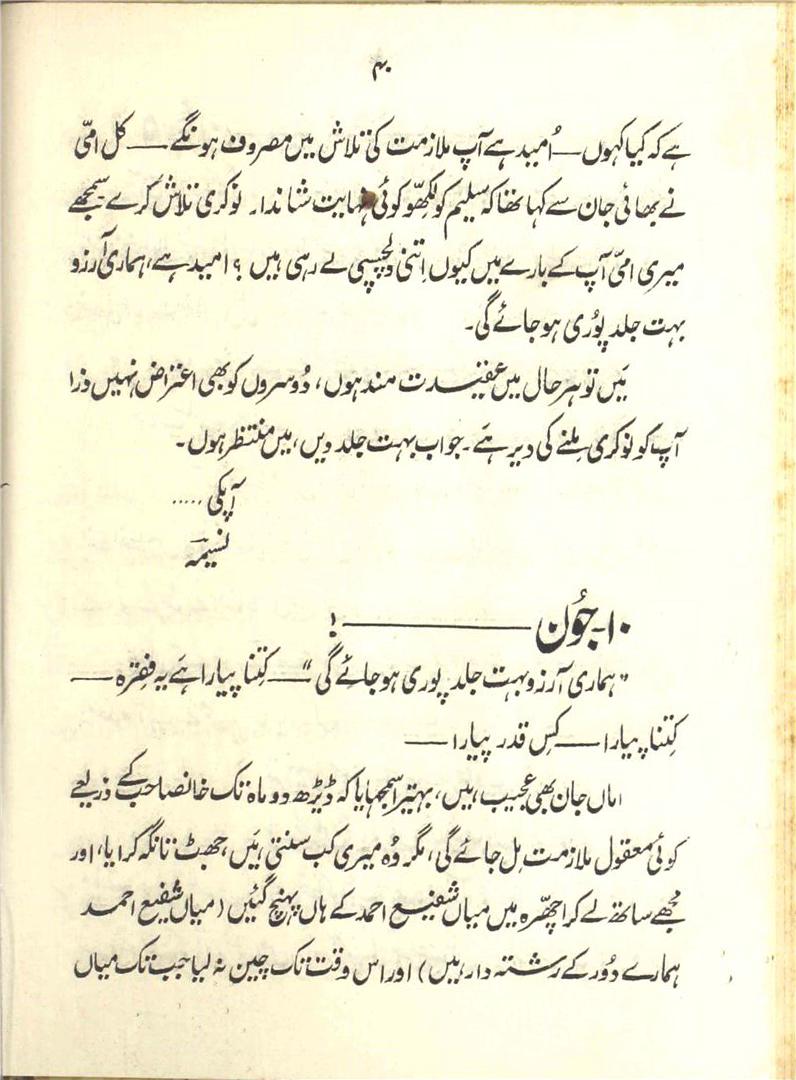 ۴۰
ہے کہ کیا کہوں — اُمید ہے آپ ملازمت کی تلاش میں مصروف ہونگے — کل امّی
نے بھائی جان سے کہا تھا کہ سلیم کو لکھّو کوئی نہایت شاندار نوکری تلاش کرے۔ سمجھے
میری امّی آپ کے بارے میں کیوں اِتنی دلچسپی لے رہی ہیں ؟ امید ہے، ہماری آرزو
بہت جلد پُوری ہو جائے گی۔
مَیں تو ہر حال میں عقیدت مند ہوں، دُوسروں کو بھی اعتراض نہیں ذرا
آپ کو نوکری مِلنے کی دیر ہَے۔ جواب بہت جلد دیں، میں منتظر ہوں۔
آپکی .....
نسیمہ
۱۰۔ جُون — !
"ہماری آرزو بہت جلد پوری ہو جائے گی" — کِتنا پیارا ہَے یہ فِقرہ —
کِتنا پیارا — کِس قدر پیارا —
اماں جان بھی عجیب ہیں، بہتیرا سمجھایا کہ ڈیڑھ دو ماہ تک خانصاحب کے ذریعے
کوئی معقول ملازمت مِل جائے گی، مگر وُہ میری کب سنتی ہیَں، جھٹ تانگہ کرایا، اور
مجھے ساتھ لے کر اچھّرہ میں میاں شفیع احمد کے ہاں پہنچ گئیں (میاں شفیع احمد
ہمارے دُور کے رشتہ دار ہیں) اور اس وقت تک چین نہ لیا جب تک میاں